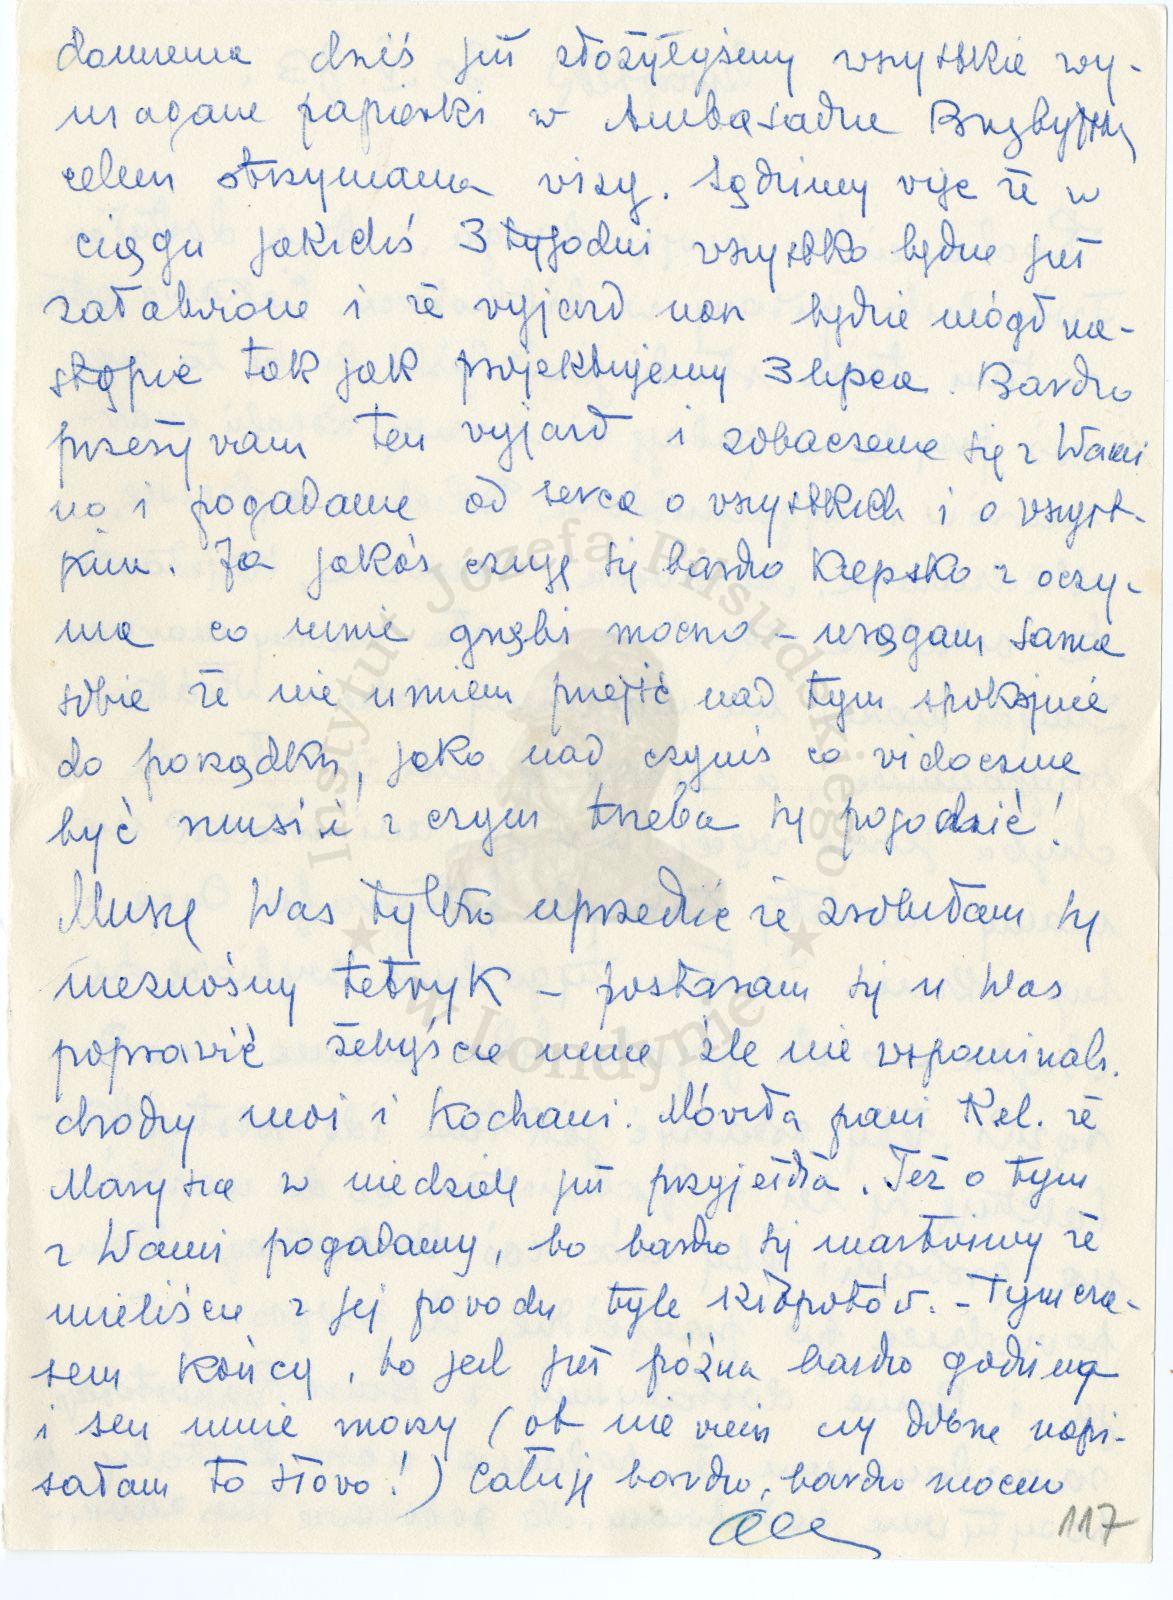 domiema dziś już złożyłyśmy wszystkie wy-
magane papierki w Ambasadzie Brazylijskiej
celem otrzymania wizy. Sądzimy więc że w
ciągu jakichś 3 tygodni wszystko będzie już
załatwione i że wyjazd nasz będzie mógł na-
stąpić tak jak projektujemy 3 lipca. Bardzo
przeżywam ten wyjazd i zobaczenie się z Wami
no i pogadanie od serca o wszystkich i o wszyst-
kim. Ja jakoś czuję się bardzo kiepsko z oczy-
ma co mnie gnębi mocno – urągam sama
sobie że nie umiem przejść nad tym spokojnie
do porządku, jako nad czymś co widocznie
być musi i z czym trzeba się pogodzić!
Muszę Was tylko uprzedzić że zrobiłam się
nieznośny tetryk – postaram się u Was
poprawić żebyście mnie źle nie wspominali.
drodzy moi i Kochani. Mówiła pani Kel. że
Marysia w niedzielę już przyjeżdża. Też o tym
z Wami pogadamy, bo bardzo się martwimy że
mieliście z jej powodu tyle kłopotów. – Tymcza-
sem kończę, bo jest już późna bardzo godzina
i sen mnie morzy (ot nie wiem czy dobrze napi-
sałam to słowo!) Całuję bardzo, bardzo mocno
Ala
117
Instytut Józefa Piłsudskiego
w Londynie